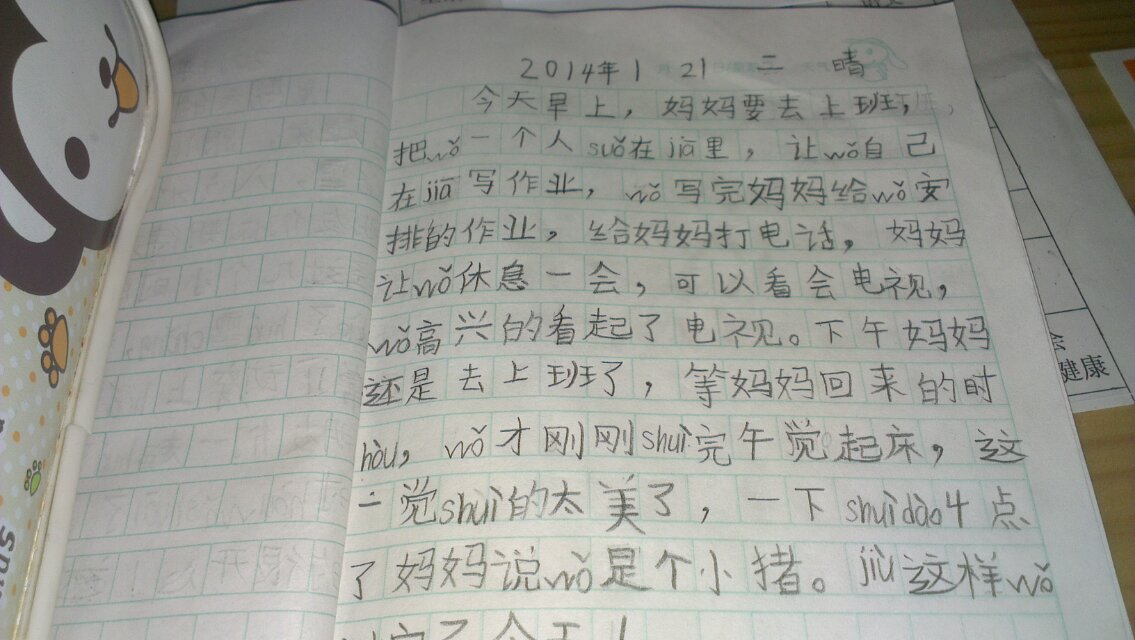 2014年1月21日 二 晴
今天早上，妈妈要去上班，
把wǒ一个人suǒ在jiā里，让wǒ自己
在jiā写作业，wǒ写完妈妈给wǒ安
排的作业，给妈妈打电话，妈妈
让wǒ休息一会，可以看会电视，
wǒ高兴的看起了电视。下午妈妈
还是去上班了，等妈妈回来的时
hòu，wǒ才刚刚shuì完午觉起床，这
一觉shuì的太美了，一下shuìdào4点
了妈妈说wǒ是个小猪。jiù这样wǒ
健康